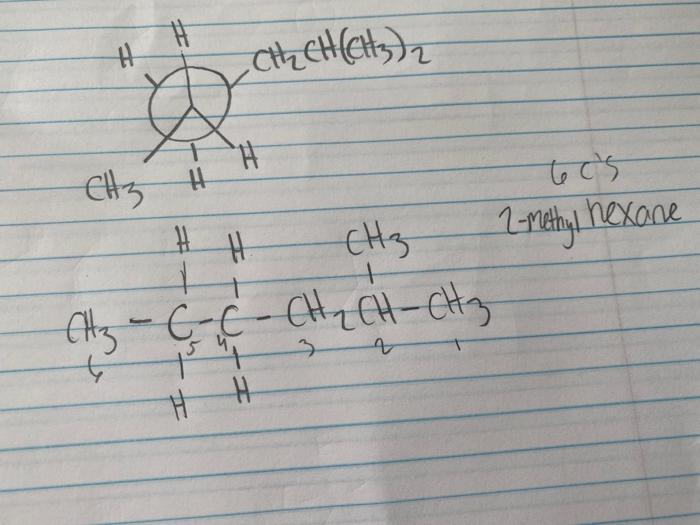 H
H
CH₂CH(CH₃)₂
CH₃
H
H
6 C's
2-methyl hexane
H H CH₃
CH₃ - C - C - CH₂ CH - CH₃
6 5 4 3 2 1
H H